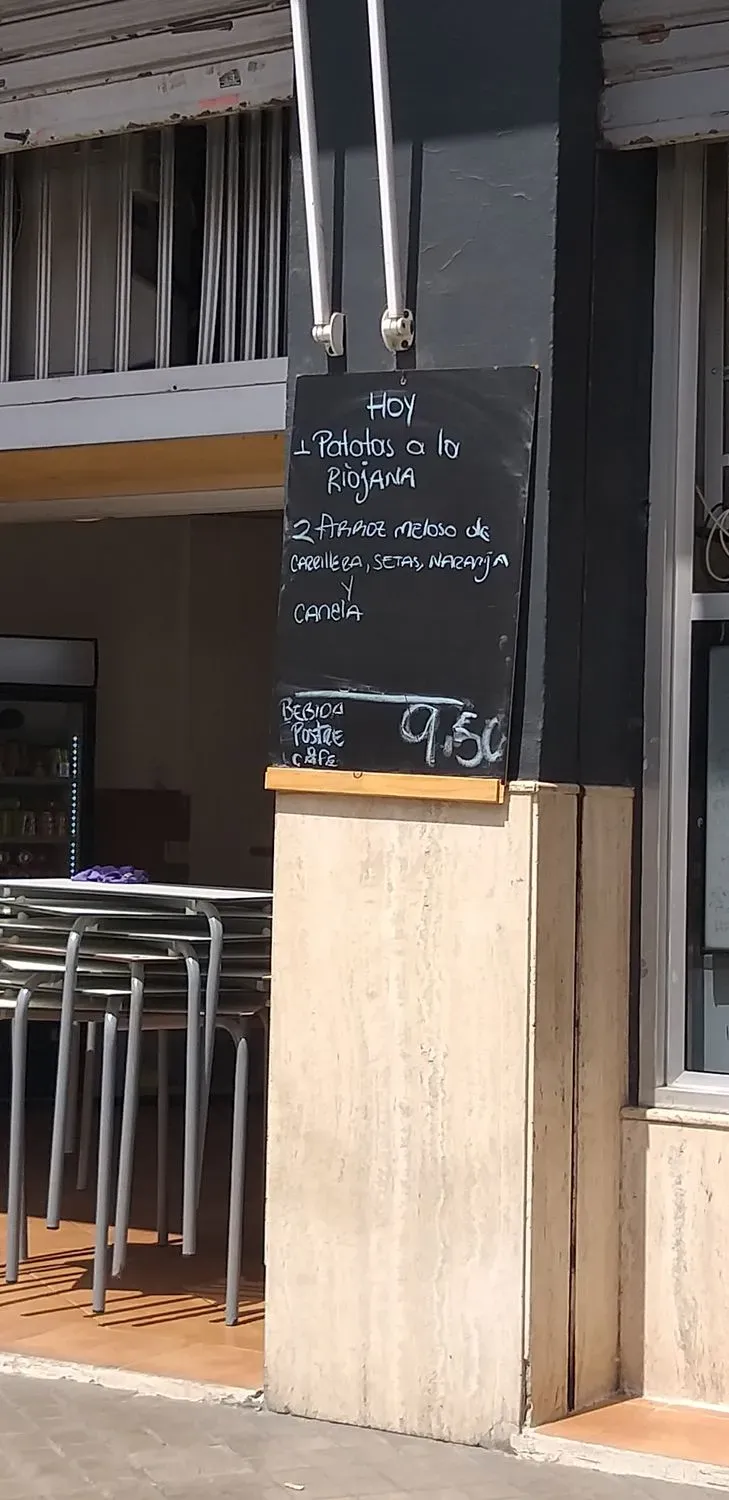 HOY
1 Patatas a la
RIOJANA
2 ARROZ meloso de
CARRILLERA, SETAS, NARANJA
Y
CANELA
BEBIDA
POSTRE
CAFE
9.50